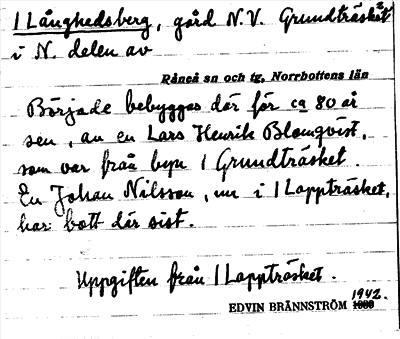 1 Långhedsberg, gård N.V. Grundträsket
i N. delen av
Råneå sn och tg, Norrbottens län
Började bebyggas där för ca 80 år
sen, av en Lars Henrik Blomqvist,
som var från byn 1 Grundträsket.
En Johan Nilsson, nu i 1 Lappträsket,
har bott där sist.
Uppgiften från 1 Lappträsket.
EDVIN BRÄNNSTRÖM 1942.